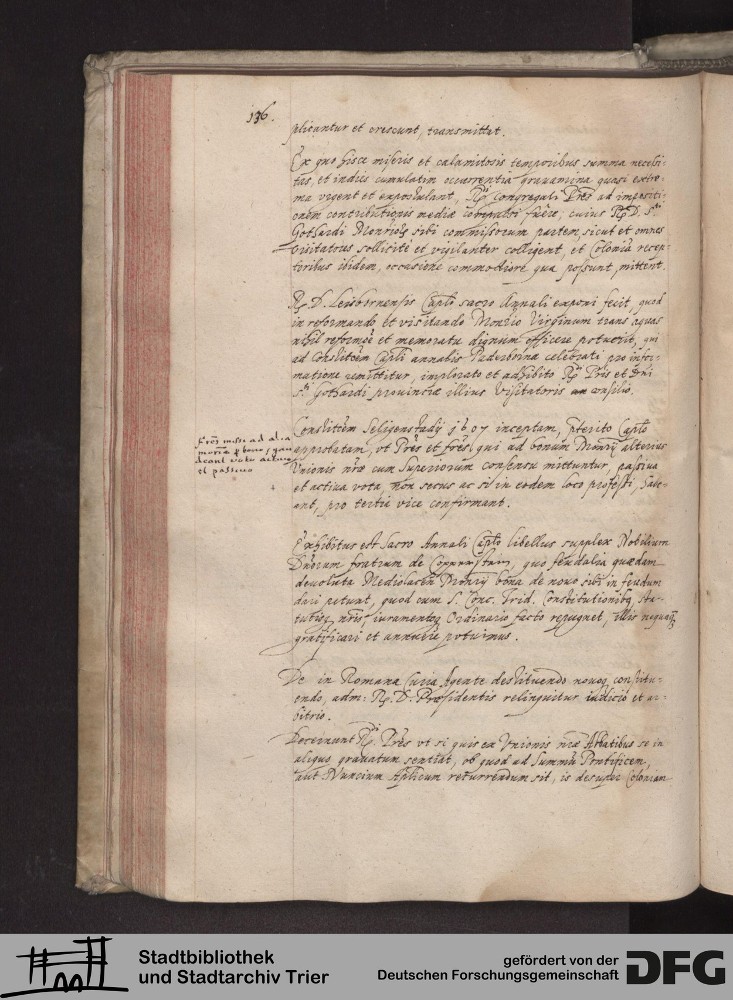 136.
plicantur et crescunt, transmittat.
Ex quo hisce miseris et calamitosis temporibus summa necessi-
tas, et indies cumulatim occurrentia gravamina quasi extre-
ma urgent et expostulant, Rdi congregati Pres ad impositi-
onem contributionis mediae compulsi fuere, cuius R. D. S.ti
Gothardi Monrijs sibi commissorum partem, sicut et omnes
visitatores sollicitè et vigilanter colligent, et Coloniā recep-
toribus ibidem, occasione commodiore qua possunt, mittent.
R. D. Leisbornensis Caplo sacro Annali exponi fecit, quod
in reformando et visitando Monrio Virginum trans aquas
nihil reformoẽ et memoratu dignum efficere potuerit, qui
ad Constitoem Capli annalis Paderbornae celebrati, pro infor-
matione remittitur, implorato et adhibito Rdi Pris et Dni
S.ti Gothardi provinciae illius Visitatoris consilio.
Fres missi ad alia
monria pro bono, gau
deant voto activo
et passivo
Constitoem Seligenstadij 1607 inceptam, pterito Caplo
approbatam, ut Pres et fres, qui ad bonum Monrij alterius
Unionis nrae cum Superiorum consensu mittuntur, passiva
et activa vota non secus ac si in eodem loco professi, habe-
ant, pro tertia vice confirmant.
Exhibitus est Sacro Annali Caplo libellus supplex Nobilium
Dnorum fratrum de Coppenstain, quo feudalia quaedam
devoluta Mediolacen Monrij bona de novo sibi in feudum
dari petunt, quod cum S. Conc. Trid. Constitutionibq, sta-
tutisq nris, iuramentoq Ordinario facto repugnet, illis nequaq
gratificari et annuere potuimus.
De in Romana Curia Agente destituendo novoq constitu-
endo, adm: R. D. Praesidentis relinquitur iudicio et ar-
bitrio.
Decernunt Rdi Pres ut si quis ex Unionis nrae Abbatibus se in
aliquo gravatum sentiat, ob quod ad Summū Pontificem,
aut Nuncium Aplicum recurrendum sit, is desuper Coloniam
Stadtbibliothek
und Stadtarchiv Trier
gefördert von der
Deutschen Forschungsgemeinschaft
DFG